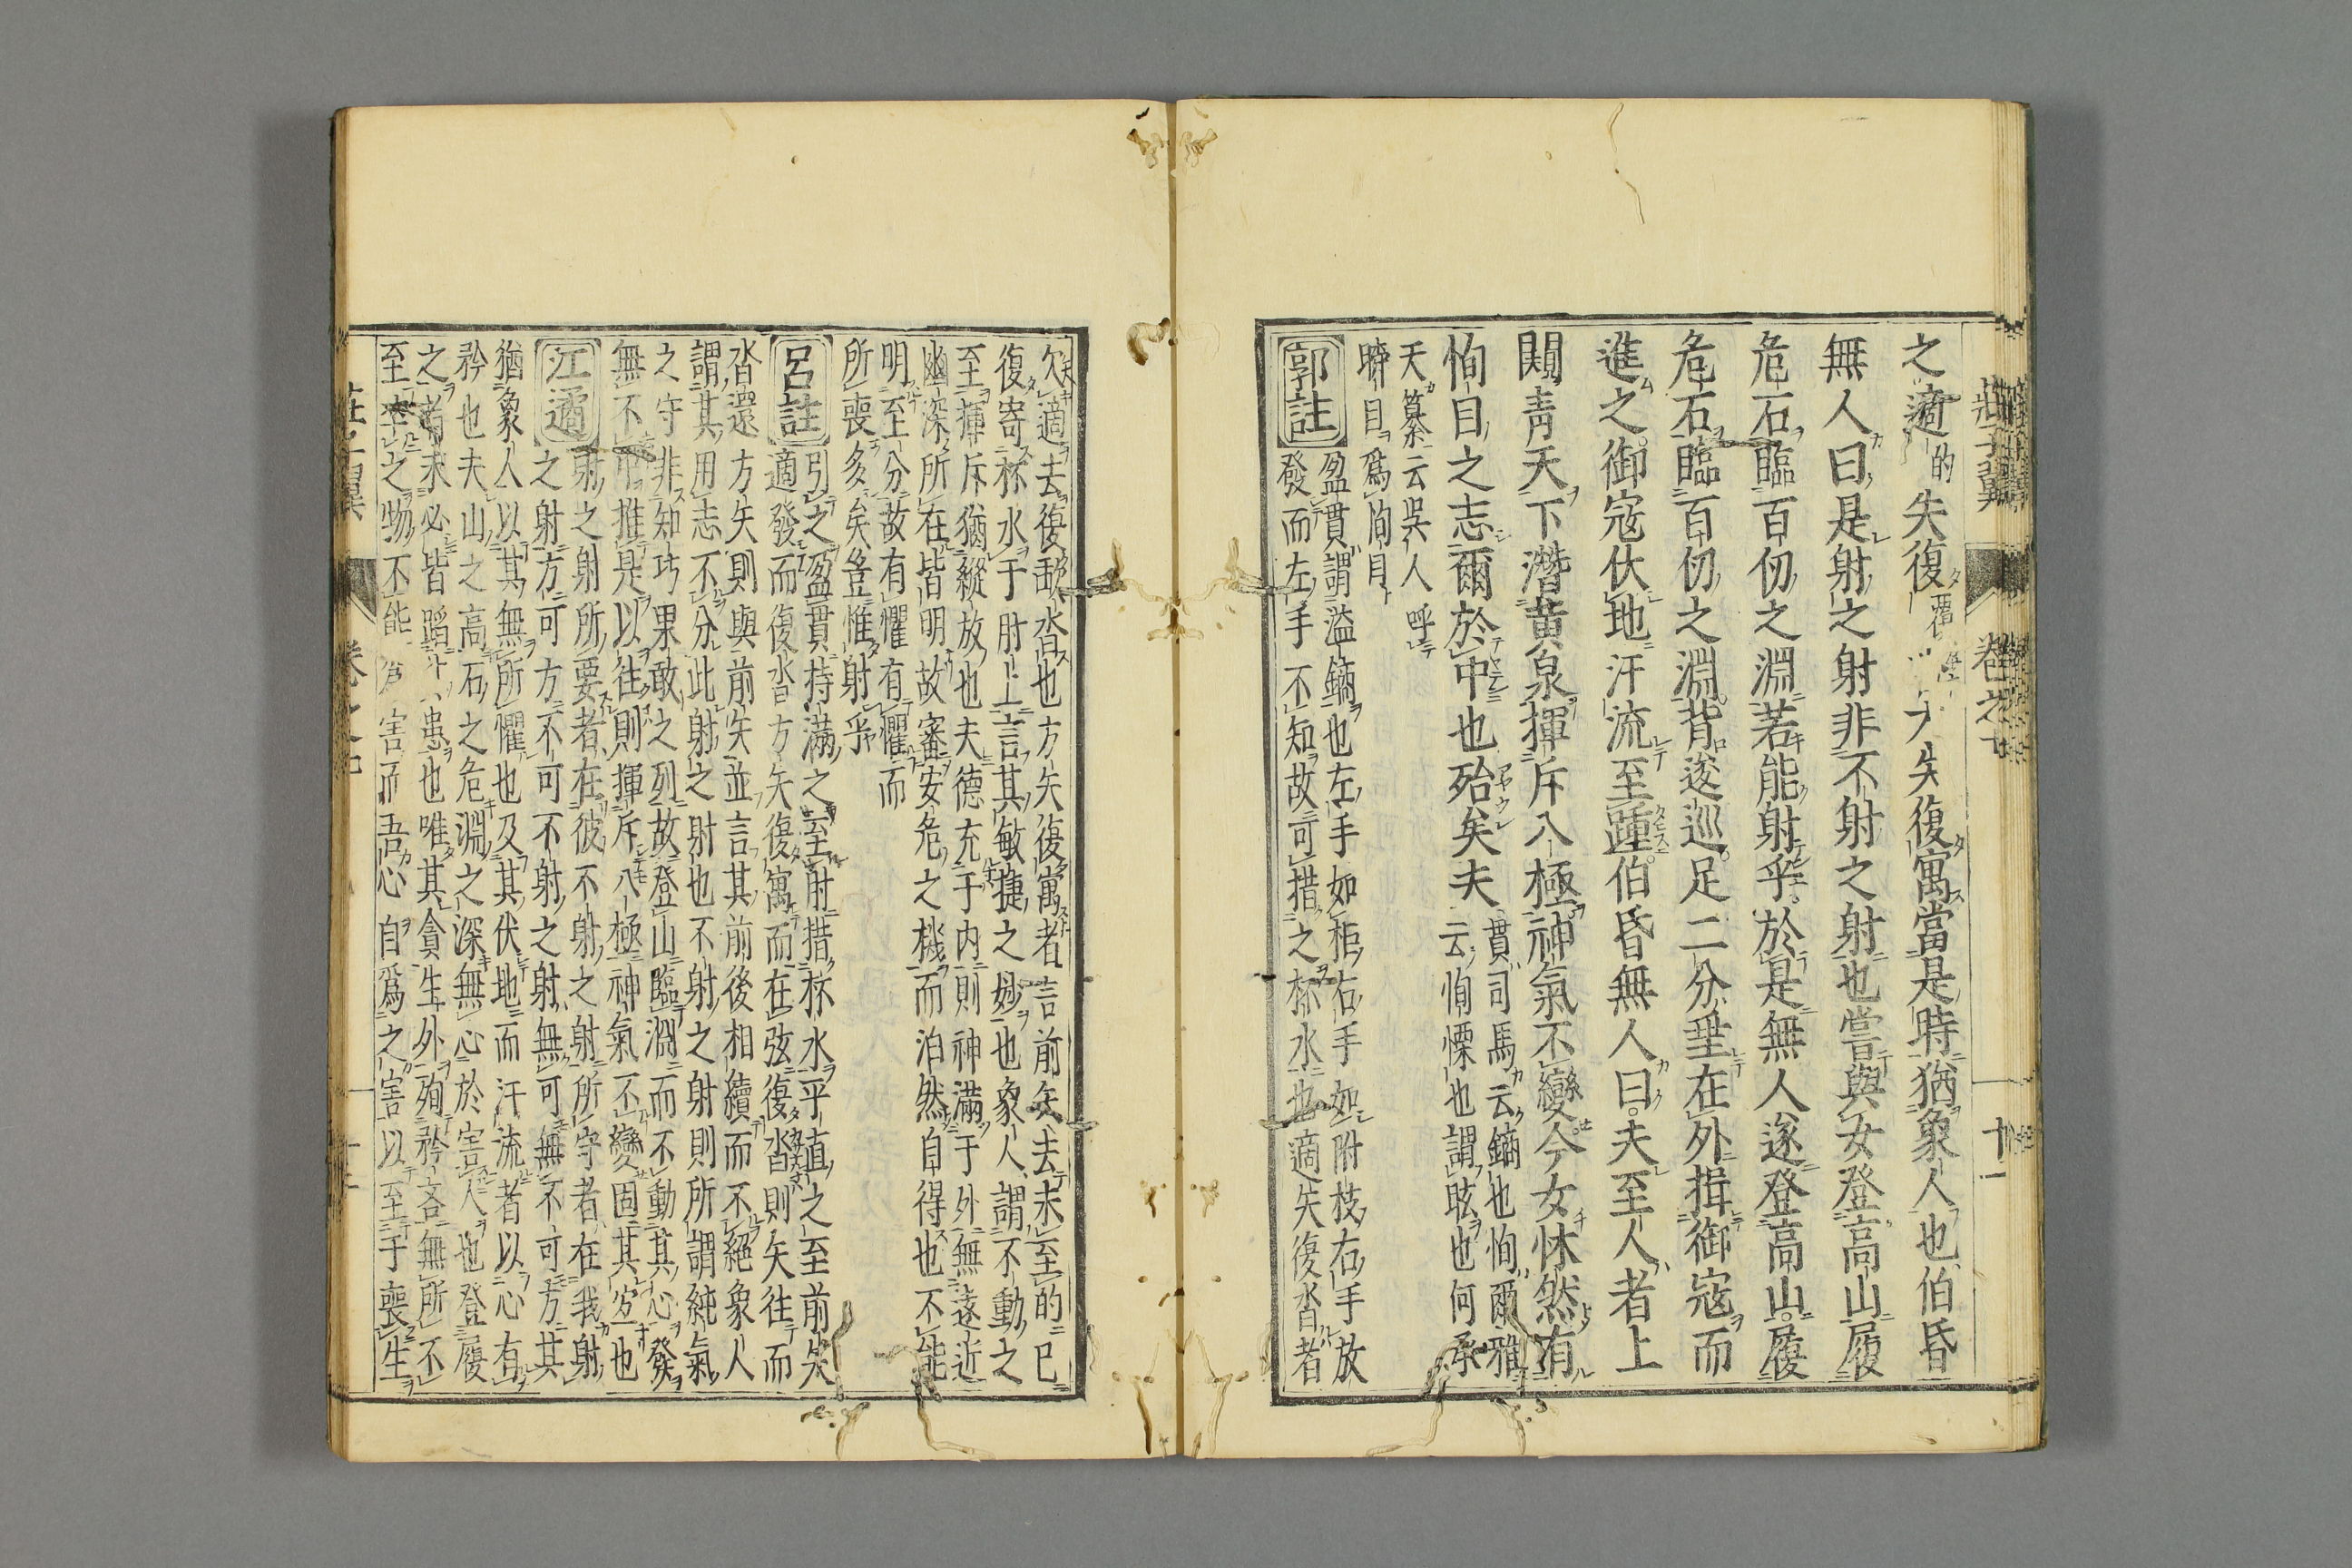 莊子翼 卷之 十一
之適的矢復 矢復寓當是時猶象人也伯昏
無人曰是射之射非不射之射也嘗與女登高山履
危石臨百仞之淵若能射乎於是無人遂登高山履
危石臨百仞之淵背逡巡足二分垂在外揖御寇而
進之御寇伏地汗流至踵伯昏無人曰夫至人者上
闚青天下潛黃泉揮斥八極神氣不變今女怵然有
恂目之志爾於中也殆矣夫
貫司馬云鏑也恂爾雅
云恂慄也謂眩也何承
天纂云吳人呼
瞬目爲恂目
郭註
盈貫謂溢鏑也左手如柜右手如附枝右手放
發而左手不知故可措之杯水也適矢復沓者
欠適去復歃沓也方矢復寓者言前矢去未至的已
復寄杯水于肘上言其敏捷之妙也象人謂不動之
至揮斥猶縱放也夫德充于内則神滿于外無遠近
幽深所在皆明故審安危之機而泊然自得也不能
明至分故有懼有懼而
所喪多矣豈惟射乎
呂註
引之盈貫持滿之至肘措杯水乎直之至前矢
適發而復沓方矢復寓而在弦復沓則矢往而
沓還方矢則與前矢並言其前後相續而不絕象人
謂其用志不分此射之射也不射之射則所謂純氣
之守非知巧果敢之列故登山臨淵而不動其心發
無不 推是以往則揮斥八極神氣不變固其宜也
江遹
射之射所要者在彼不射之射所守者在我射
之射方可方不可不射之射無可無不可方其
猶象人以其無所懼也及其伏地而汗流者以心有
矜也夫山之高石之危淵之深無心於害人也登履
之者未必皆蹈 患也唯其貪生外殉矜吝無所不
至 之物不能 害而吾心自爲之害以至于喪生